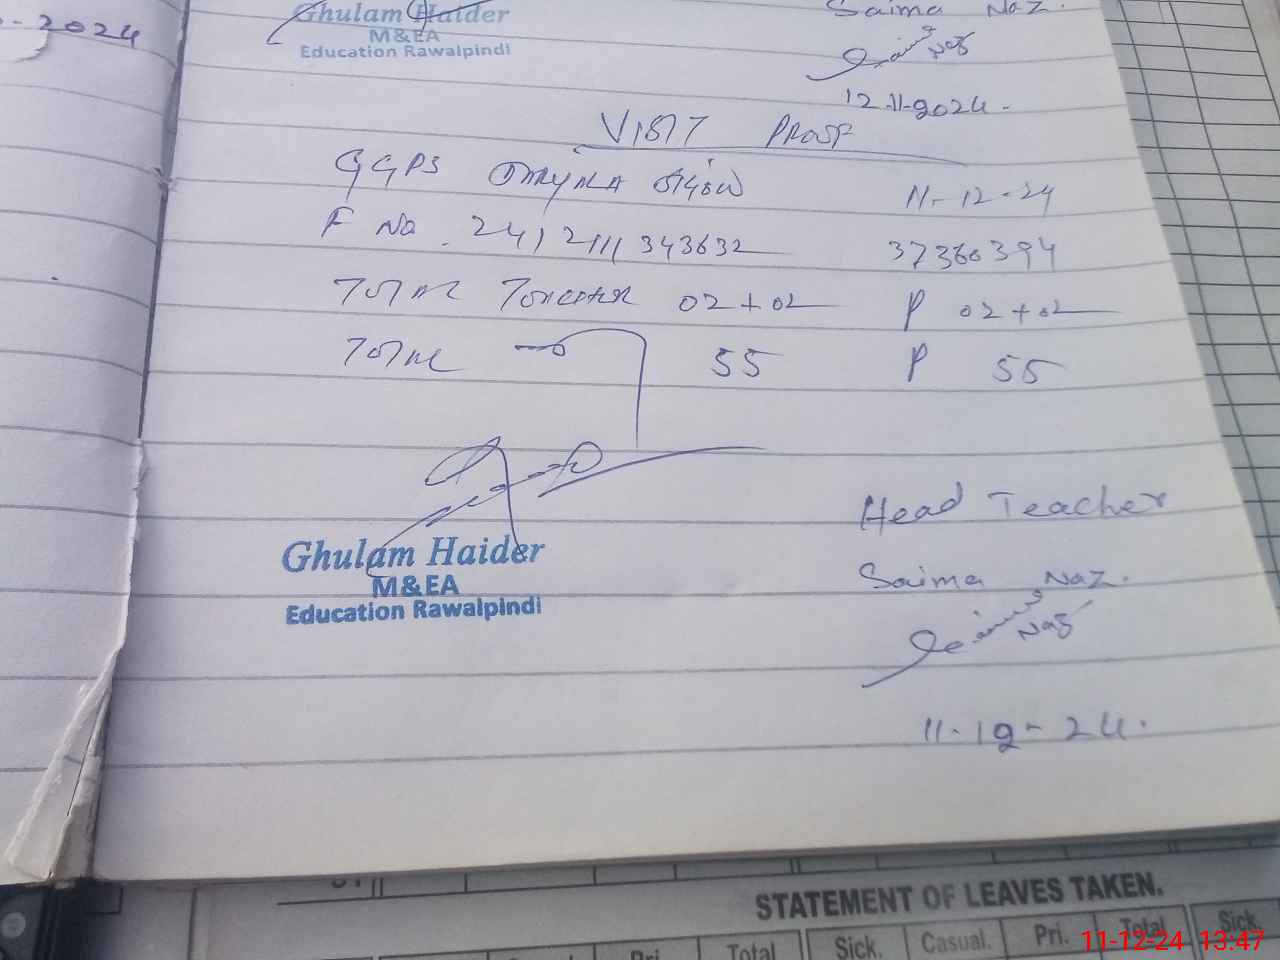 -2024
Ghulam Haider
M&EA
Education Rawalpindi
Saima Naz.
Naz
12.11.2024.
VISIT PROOF
GGPS 11-12-24
F No. 2412111343632 37360394
Total 02+02 P 02+02
Total 55 P 55
Ghulam Haider
M&EA
Education Rawalpindi
Head Teacher
Saima Naz.
Saima Naz
11-12-24.
STATEMENT OF LEAVES TAKEN.
Pri. Total Sick. Casual. Pri. Total Sick.
11-12-24 13:47